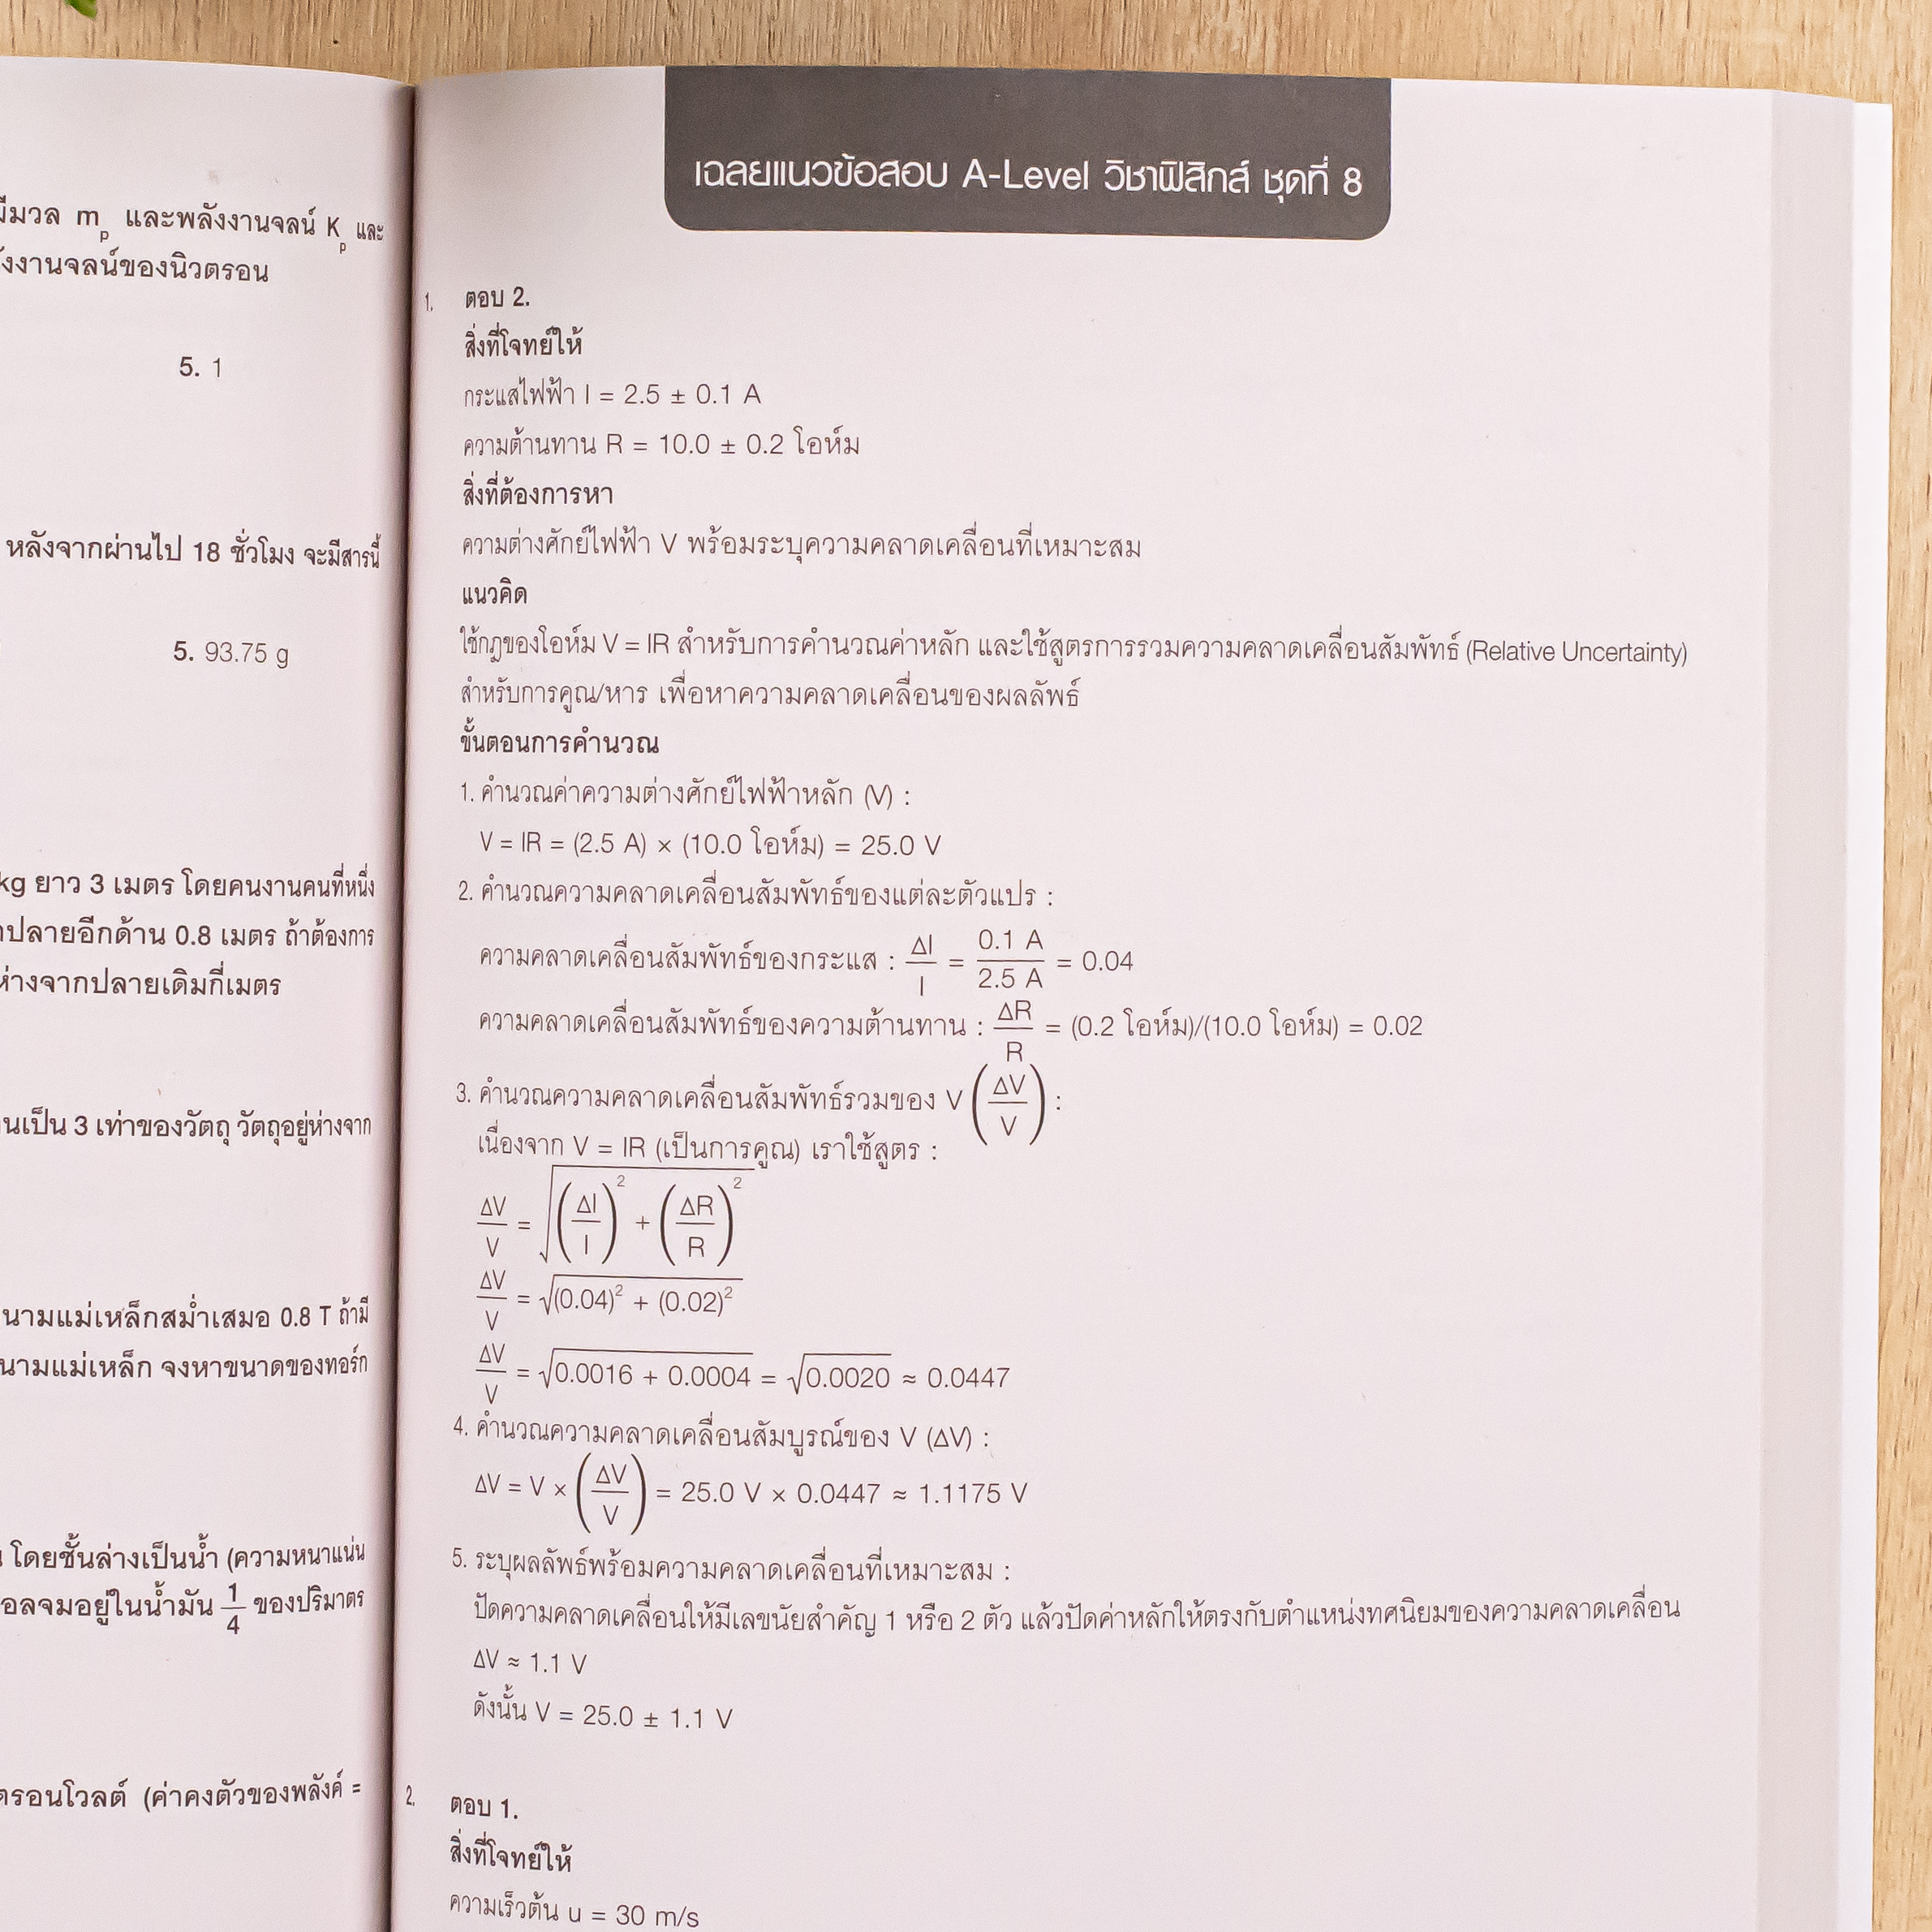 มีมวล mp และพลังงานจลน์ Kp และ
งงานจลน์ของนิวตรอน
5. 1
หลังจากผ่านไป 18 ชั่วโมง จะมีสารนี้
5. 93.75 g
kg ยาว 3 เมตร โดยคนงานคนที่หนึ่ง
ปลายอีกด้าน 0.8 เมตร ถ้าต้องการ
ห่างจากปลายเดิมกี่เมตร
นเป็น 3 เท่าของวัตถุ วัตถุอยู่ห่างจาก
นามแม่เหล็กสม่ำเสมอ 0.8 T ถ้ามี
นามแม่เหล็ก จงหาขนาดของทอร์ก
โดยชั้นล่างเป็นน้ำ (ความหนาแน่น
อลจมอยู่ในน้ำมัน 1/4 ของปริมาตร
ตรอนโวลต์ (ค่าคงตัวของพลังค์ =
เฉลยแนวข้อสอบ A-Level วิชาฟิสิกส์ ชุดที่ 8
1. ตอบ 2.
สิ่งที่โจทย์ให้
กระแสไฟฟ้า I = 2.5 ± 0.1 A
ความต้านทาน R = 10.0 ± 0.2 โอห์ม
สิ่งที่ต้องการหา
ความต่างศักย์ไฟฟ้า V พร้อมระบุความคลาดเคลื่อนที่เหมาะสม
แนวคิด
ใช้กฎของโอห์ม V = IR สำหรับการคำนวณค่าหลัก และใช้สูตรการรวมความคลาดเคลื่อนสัมพัทธ์ (Relative Uncertainty)
สำหรับการคูณ/หาร เพื่อหาความคลาดเคลื่อนของผลลัพธ์
ขั้นตอนการคำนวณ
1. คำนวณค่าความต่างศักย์ไฟฟ้าหลัก (V) :
V = IR = (2.5 A) × (10.0 โอห์ม) = 25.0 V
2. คำนวณความคลาดเคลื่อนสัมพัทธ์ของแต่ละตัวแปร :
ความคลาดเคลื่อนสัมพัทธ์ของกระแส : ΔI/I = 0.1 A/2.5 A = 0.04
ความคลาดเคลื่อนสัมพัทธ์ของความต้านทาน : ΔR/R = (0.2 โอห์ม)/(10.0 โอห์ม) = 0.02
3. คำนวณความคลาดเคลื่อนสัมพัทธ์รวมของ V (ΔV/V) :
เนื่องจาก V = IR (เป็นการคูณ) เราใช้สูตร :
ΔV/V = √((ΔI/I)² + (ΔR/R)²)
ΔV/V = √((0.04)² + (0.02)²)
ΔV/V = √(0.0016 + 0.0004) = √0.0020 ≈ 0.0447
4. คำนวณความคลาดเคลื่อนสัมบูรณ์ของ V (ΔV) :
ΔV = V × (ΔV/V) = 25.0 V × 0.0447 ≈ 1.1175 V
5. ระบุผลลัพธ์พร้อมความคลาดเคลื่อนที่เหมาะสม :
ปัดความคลาดเคลื่อนให้มีเลขนัยสำคัญ 1 หรือ 2 ตัว แล้วปัดค่าหลักให้ตรงกับตำแหน่งทศนิยมของความคลาดเคลื่อน
ΔV ≈ 1.1 V
ดังนั้น V = 25.0 ± 1.1 V
2. ตอบ 1.
สิ่งที่โจทย์ให้
ความเร็วต้น u = 30 m/s